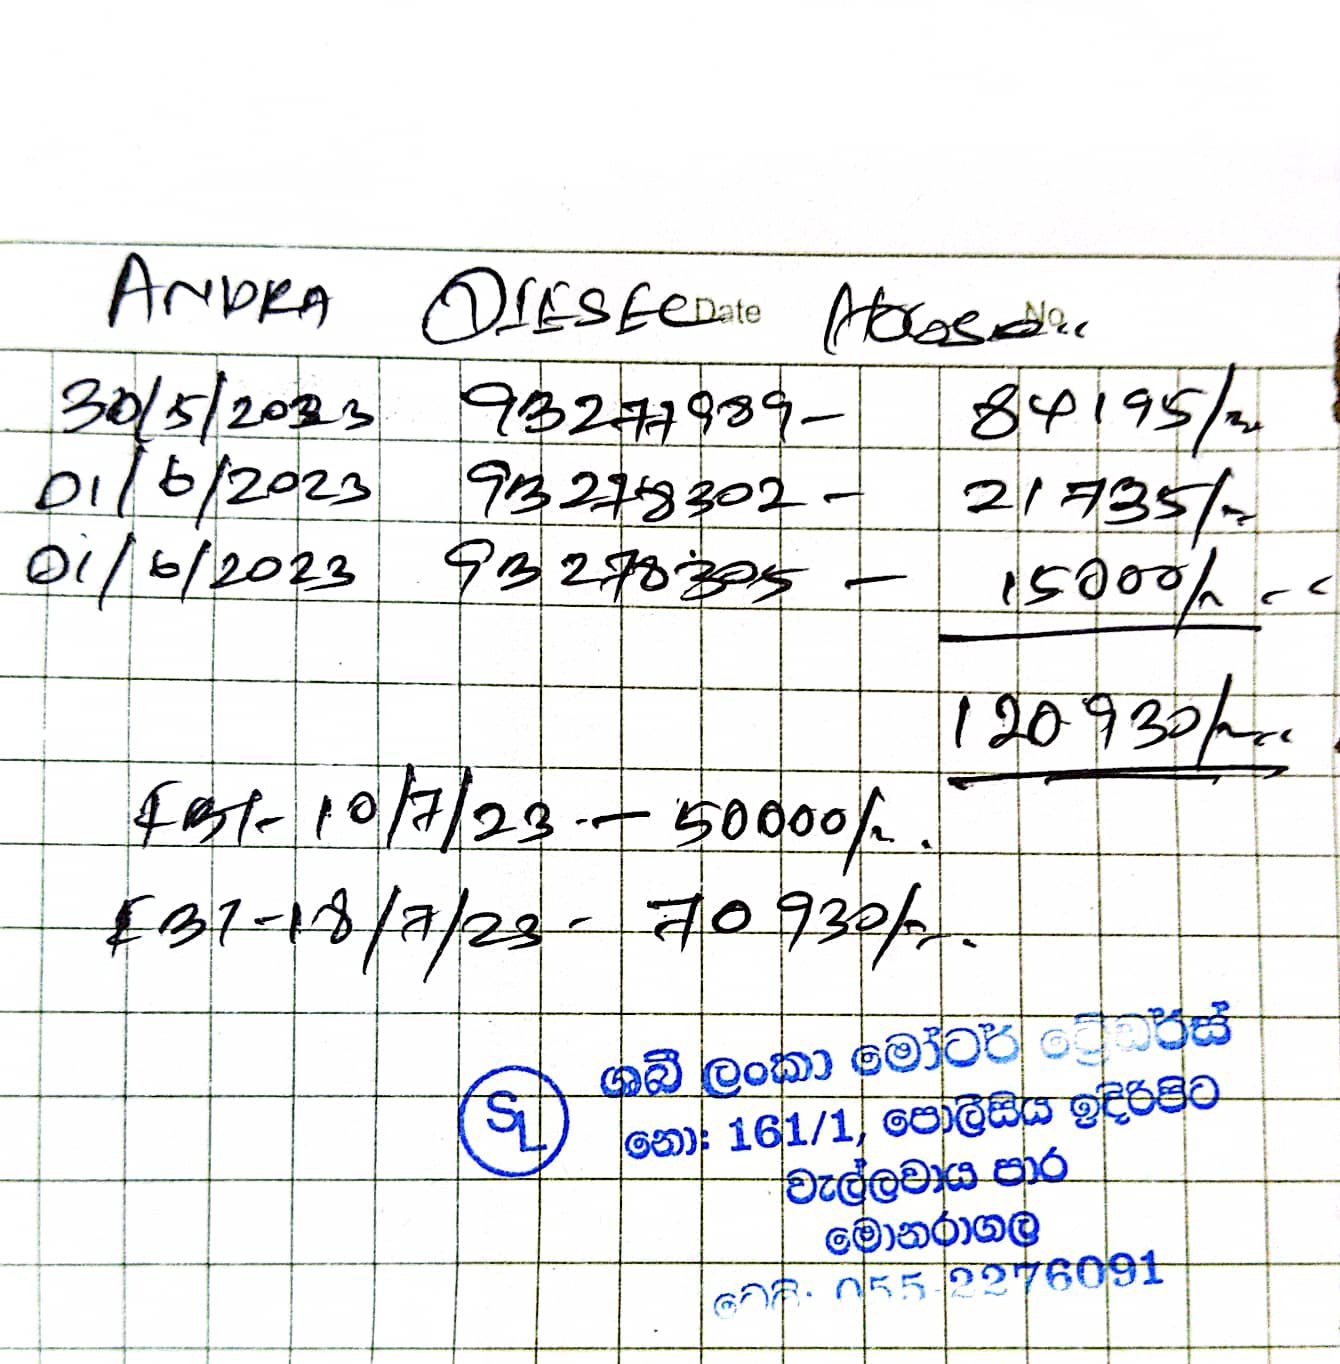 ANDRA DIESEL Date No.
30/5/2023 93277989- 84195/=
01/6/2023 93278302 - 21735/=
01/6/2023 93278305 - 15000/=
120930/=
10/7/23 - 50000/=
18/7/23 - 70930/=
SL ශබී ලංකා මෝටර් ට්‍රේඩර්ස්
නො: 161/1, පොලීසිය ඉදිරිපිට
වැල්ලවාය පාර
මොනරාගල
055-2276091